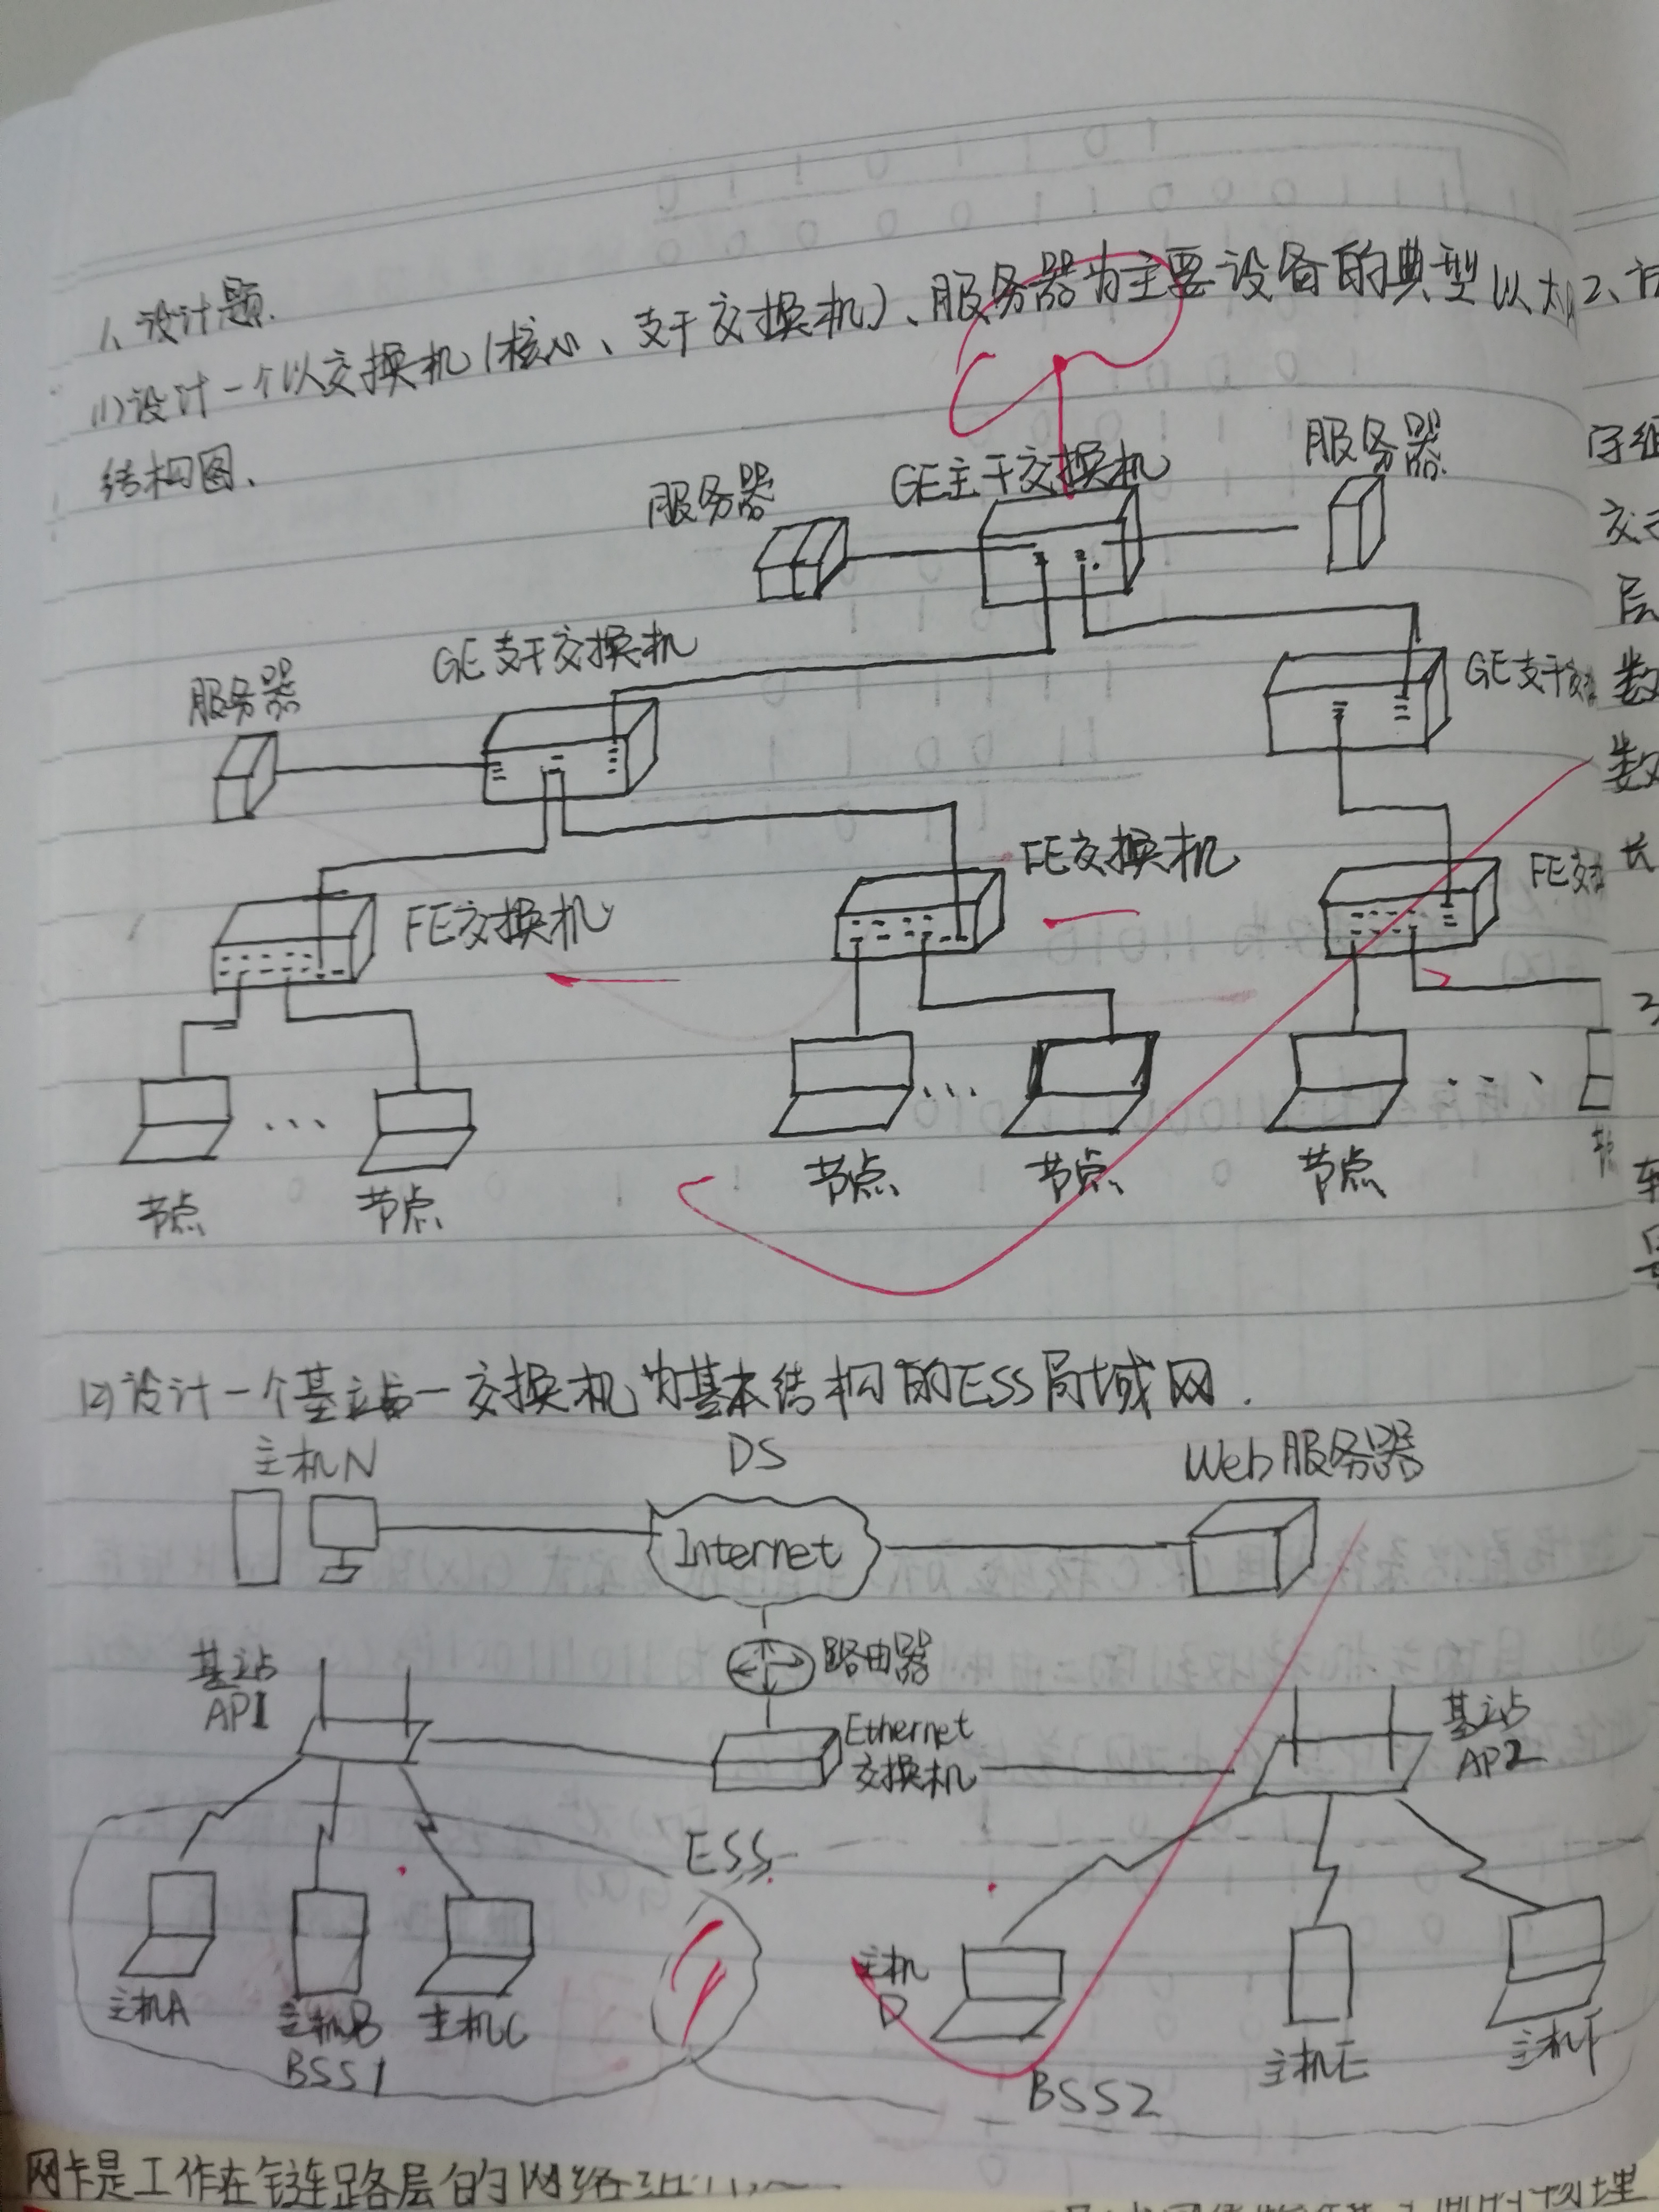 1、设计题.
(1)设计一个以交换机(核心、支干交换机)、服务器为主要设备的典型以太
结构图.
服务器
GE主干交换机
服务器
服务器
GE支干交换机
GE支干
FE交换机
FE交换机
FE交
节点
节点
节点
节点
节点
(2)设计一个基站—交换机为基本结构的ESS局域网.
主机N
DS
Web服务器
Internet
路由器
基站
AP1
Ethernet
交换机
基站
AP2
ESS
主机A
主机B
主机C
主机
D
主机E
主机F
BSS1
BSS2
网卡是工作在链路层的网络
物理
2、
字组
层
数
数
长